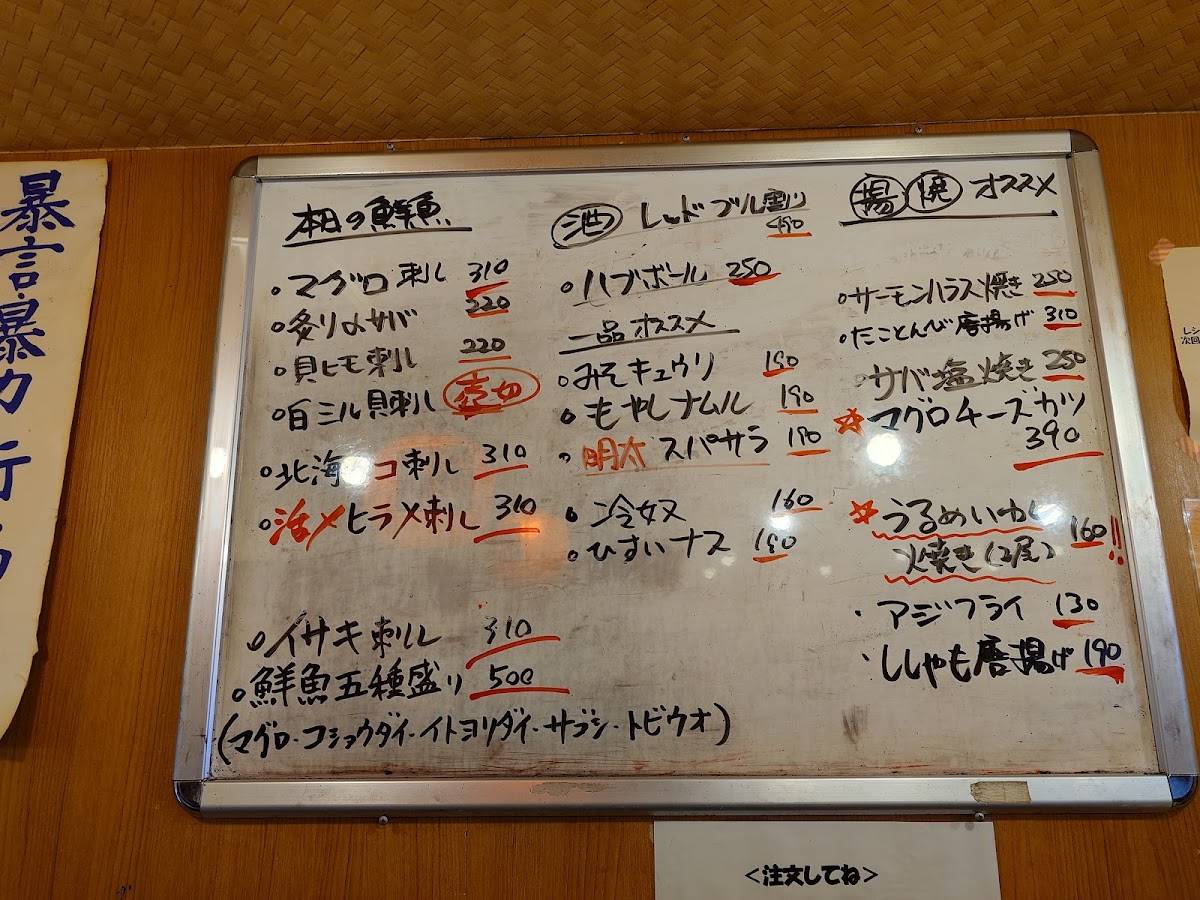 暴言・暴力・行
本日の鮮魚
・マグロ刺し 310
・炙り〆サバ 220
・貝ヒモ刺し 220
・白ミル貝刺し 売切
・北海タコ刺し 310
・活〆ヒラメ刺し 310
・イサキ刺し 310
・鮮魚五種盛り 500
(マグロ・コショウダイ・イトヨリダイ・サゴシ・トビウオ)
酒 レッドブル割り
490
・ハブボール 250
一品オススメ
・みそキュウリ 190
・もやしナムル 190
・明太スパサラ 190
・冷奴 160
・ひすいナス 190
揚 焼 オススメ
・サーモンハラス焼き 250
・たことんび唐揚げ 310
・サバ塩焼き 250
☆マグロチーズカツ
390
☆うるめいわし
焼き(2尾) 160!!
・アジフライ 130
・ししゃも唐揚げ 190
レシ
次回
<注文してね>